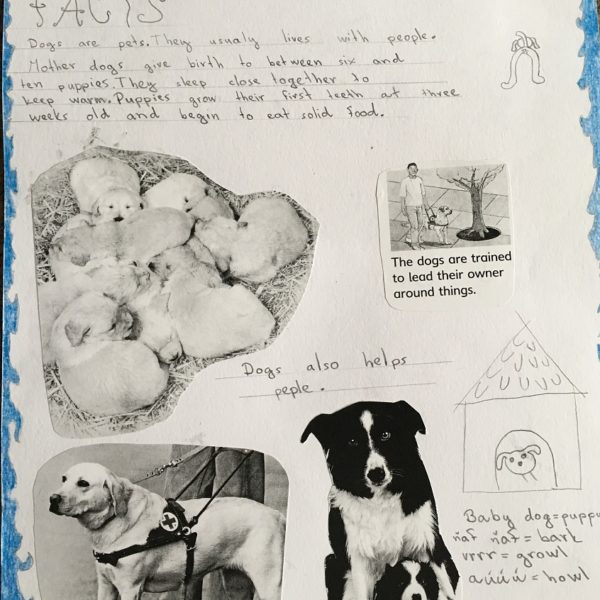 FACTS
Dogs are pets. They usualy lives with people.
Mother dogs give birth to between six and
ten puppies. They sleep close together to
keep warm. Puppies grow their first teeth at three
weeks old and begin to eat solid food.
The dogs are trained
to lead their owner
around things.
Dogs also helps
peple.
Baby dog=puppy
ňaf ňaf = bark
vrrr = growl
aúúú = howl